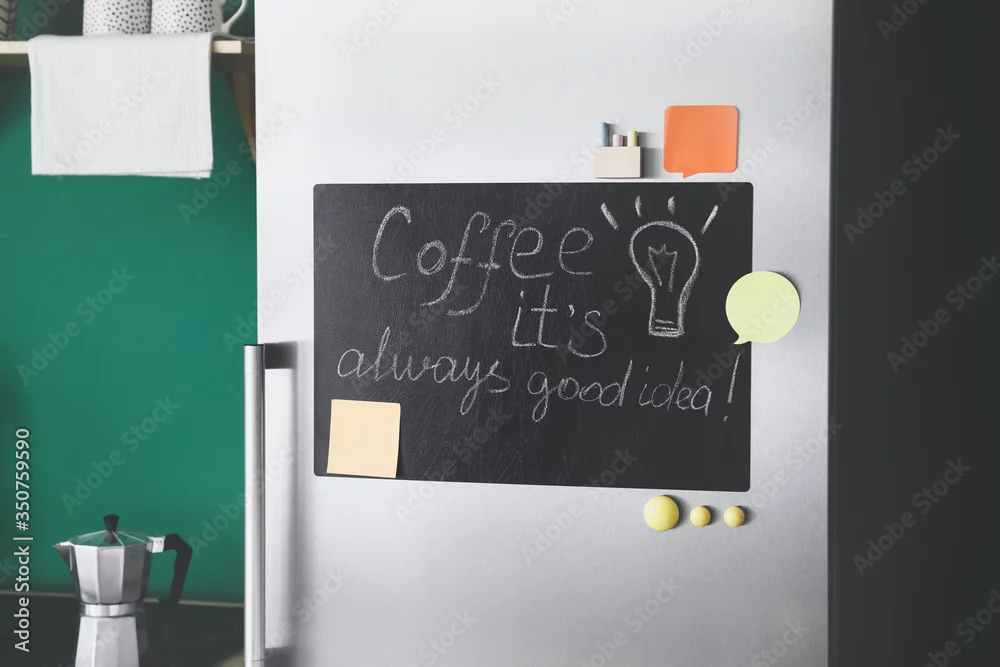 Coffee
it's
always good idea!
Adobe Stock | #350759590